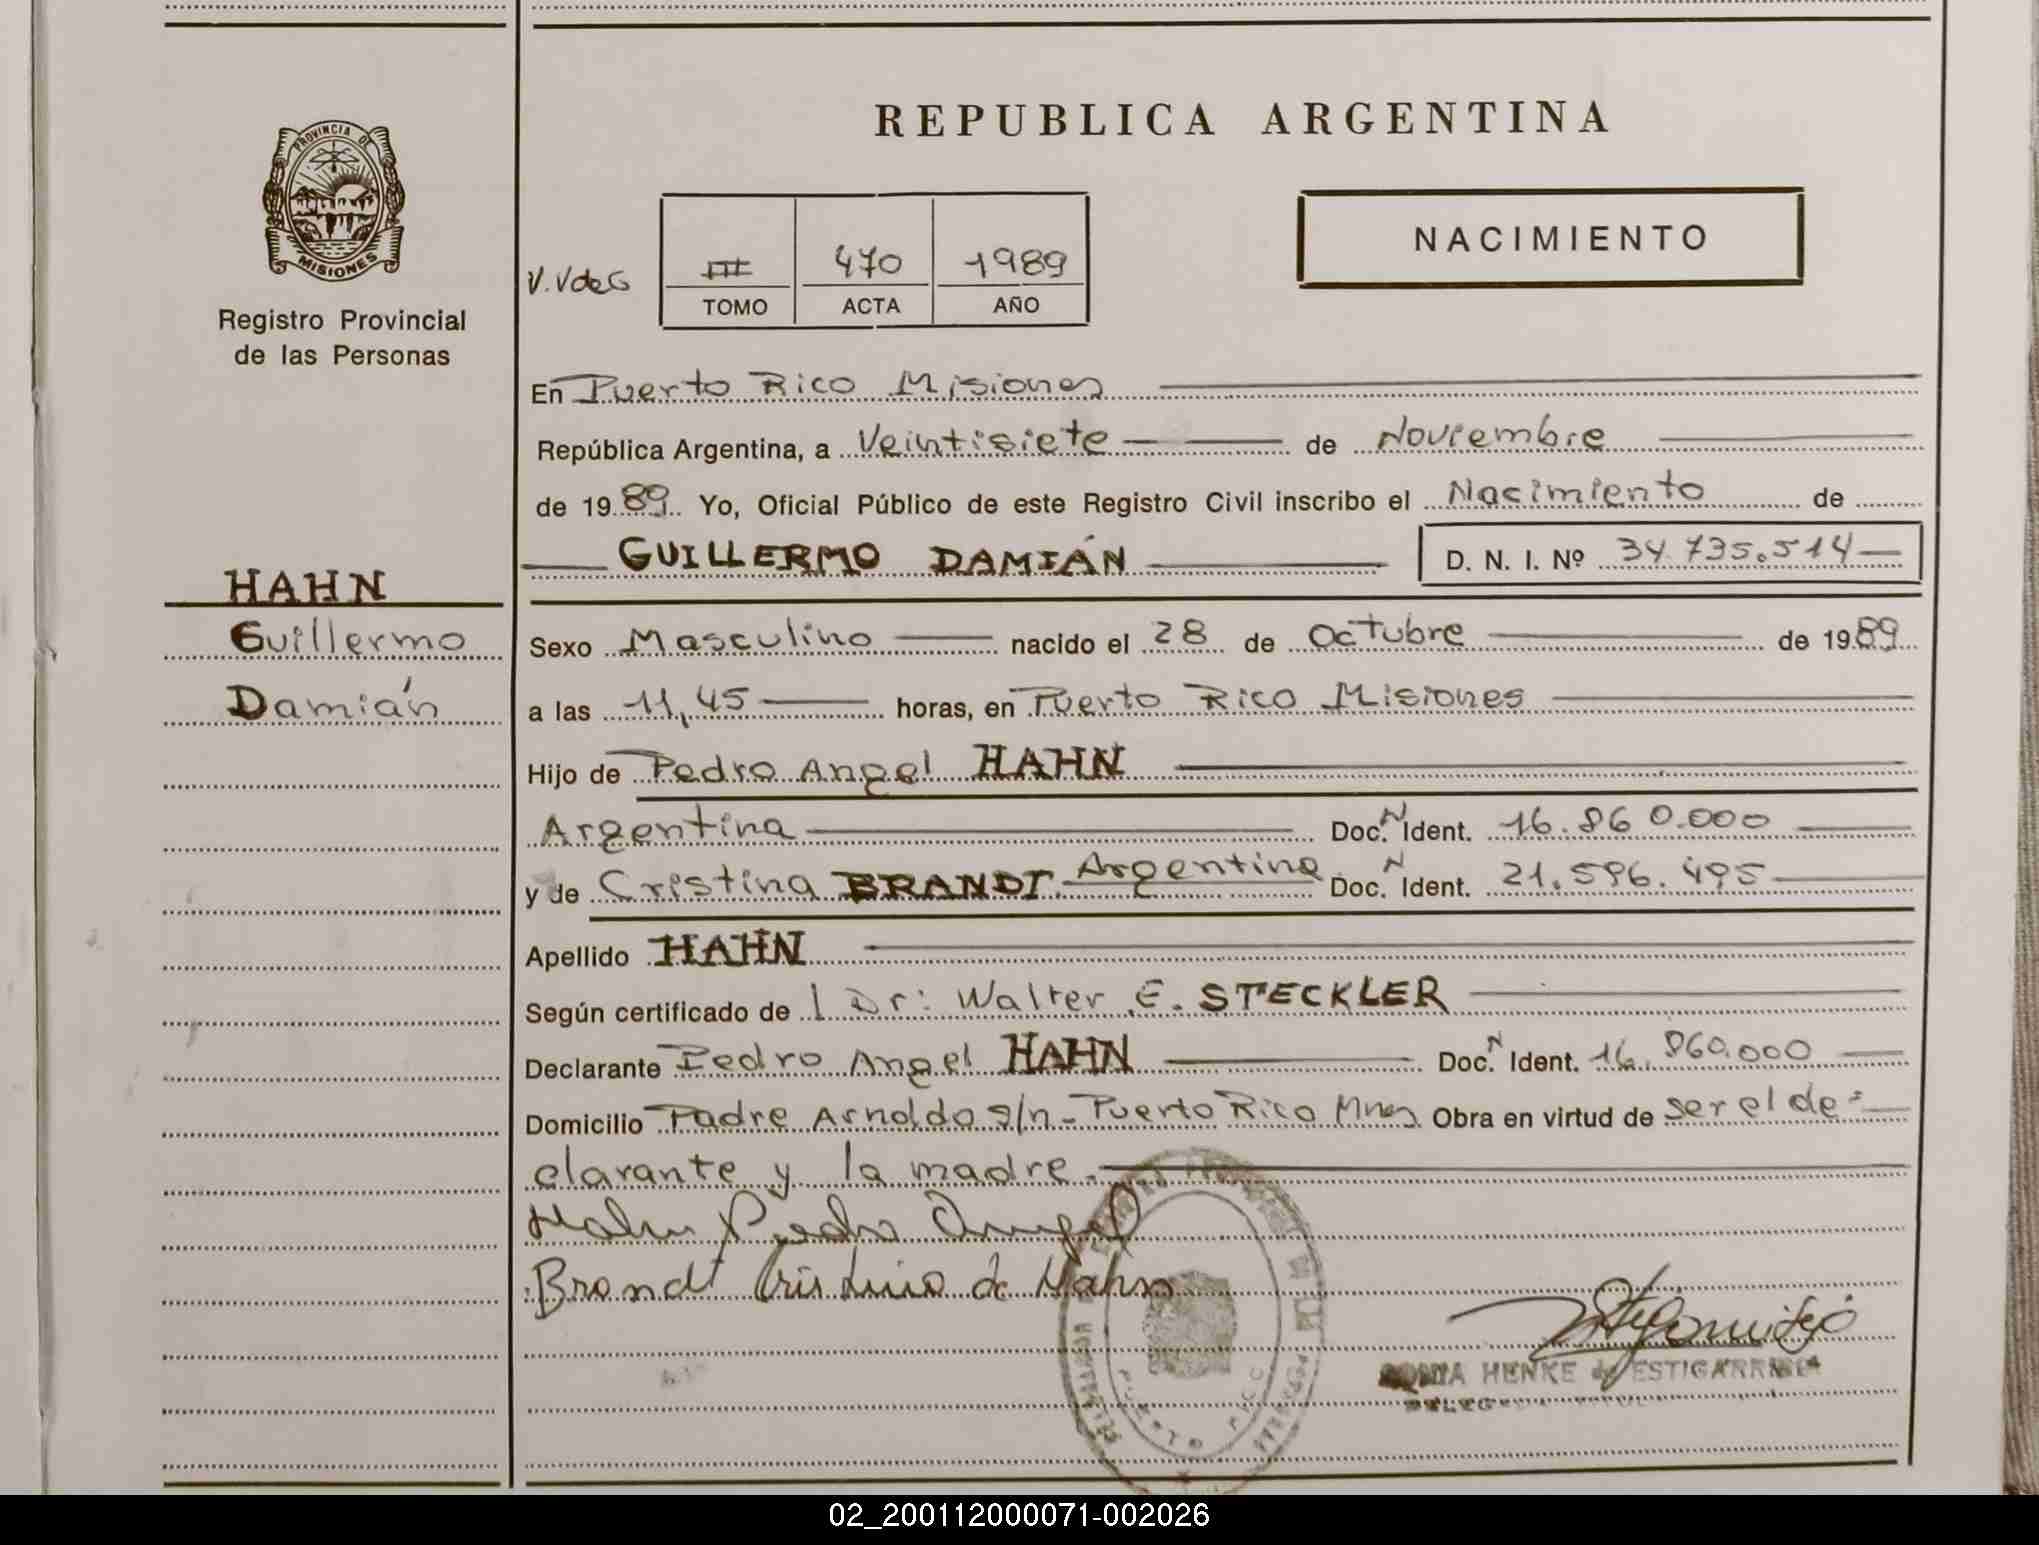 REPUBLICA ARGENTINA
PROVINCIA DE
MISIONES
Registro Provincial
de las Personas
V.VdeG
III 470 1989
TOMO ACTA AÑO
NACIMIENTO
En Puerto Rico Misiones
República Argentina, a Veintisiete de Noviembre
de 1989 Yo, Oficial Público de este Registro Civil inscribo el Nacimiento de
GUILLERMO DAMIÁN D. N. I. Nº 34.735.514
HAHN
Guillermo
Damián
Sexo Masculino nacido el 28 de Octubre de 1989
a las 11,45 horas, en Puerto Rico Misiones
Hijo de Pedro Angel HAHN
Argentina Doc. N Ident. 16.860.000
y de Cristina BRANDT. Argentina Doc. N Ident. 21.596.495
Apellido HAHN
Según certificado de l Dr: Walter E. STECKLER
Declarante Pedro Angel HAHN Doc. N Ident. 16.860.000
Domicilio Padre Arnoldo s/n - Puerto Rico Mnes Obra en virtud de ser el de=
clarante y la madre.
Hahn Pedro Angel
Brandt Cristina de Hahn
SONIA HENKE de ESTIGARRIBIA
PUERTO RICO
02_200112000071-002026